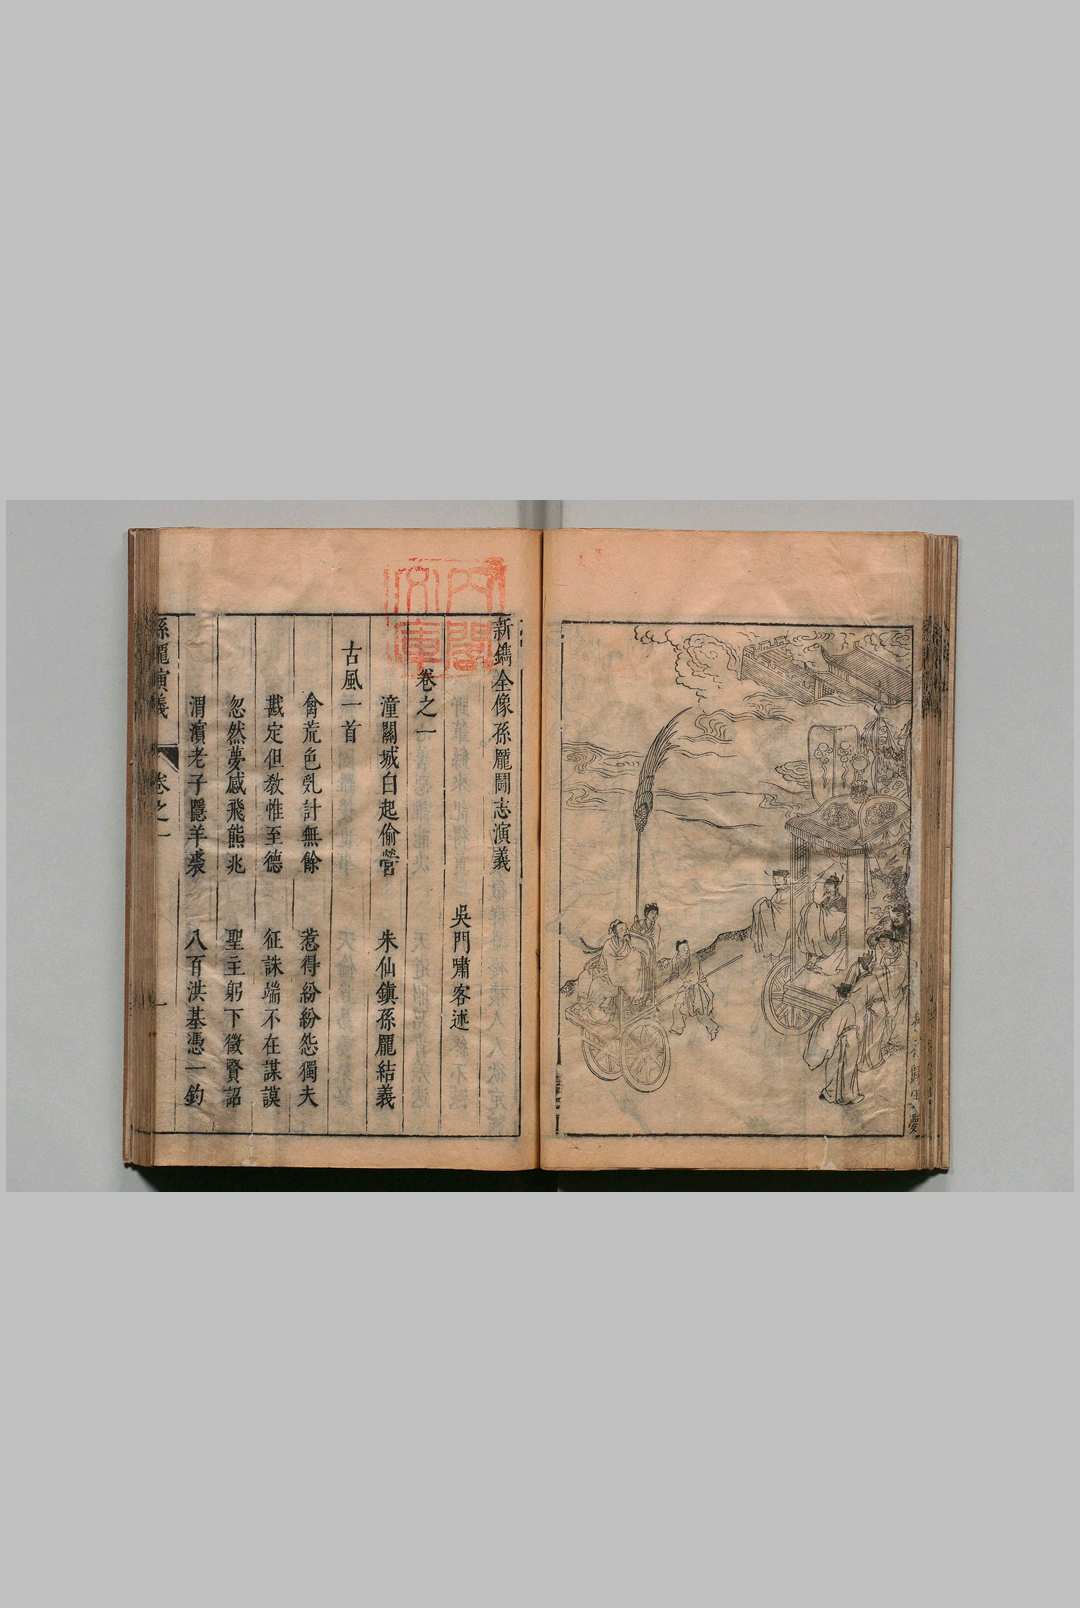 新鐫全像孫龐鬪志演義
吳門嘯客述
卷之一
潼關城白起偷營 朱仙鎮孫龐結義
古風一首
禽荒色乱計無餘 惹得紛紛怨獨夫
戡定但教惟至德 征誅端不在謀謨
忽然夢感飛熊兆 聖主躬下徵賢詔
渭濱老子隱羊裘 八百洪基憑一釣
孫龐演義 卷之一 一
內閣
文庫